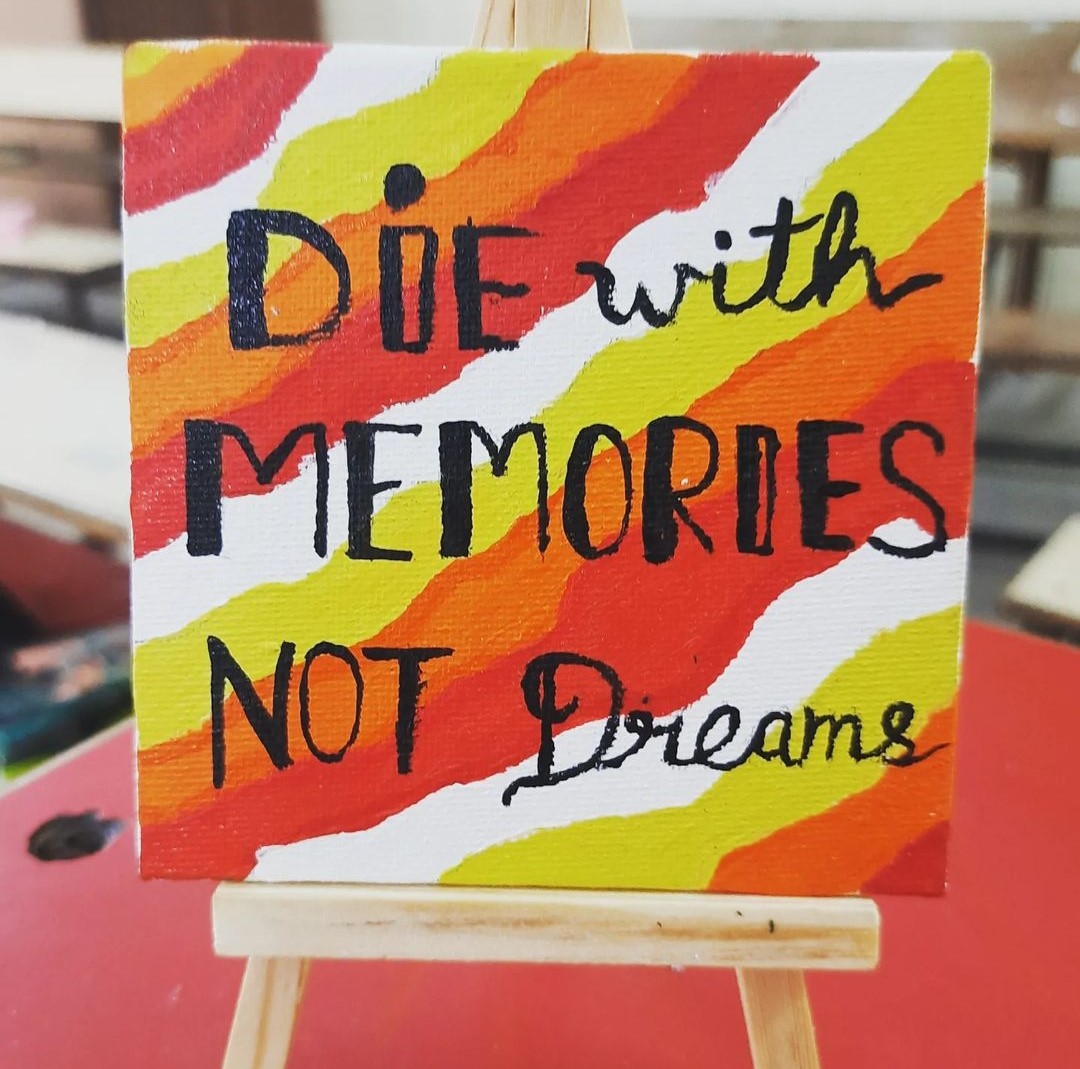 DiE with
MEMORIES
NOT Dreams